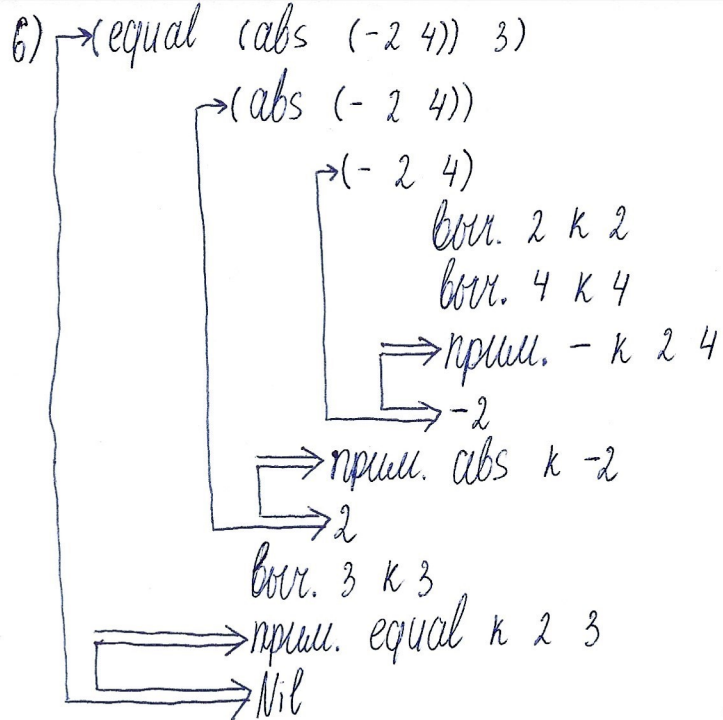 6) (equal (abs (-2 4)) 3)
(abs (- 2 4))
(- 2 4)
выч. 2 к 2
выч. 4 к 4
прим. - к 2 4
-2
прим. abs к -2
2
выч. 3 к 3
прим. equal к 2 3
Nil